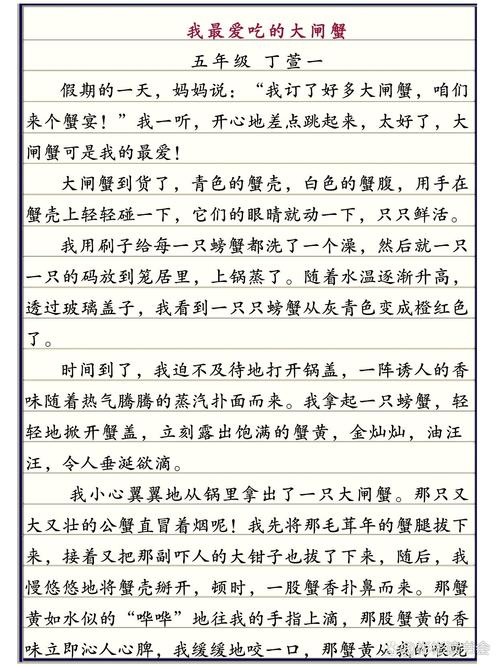 我最爱吃的大闸蟹
五年级 丁萱一
假期的一天，妈妈说：“我订了好多大闸蟹，咱们
来个蟹宴！”我一听，开心地差点跳起来，太好了，大
闸蟹可是我的最爱！
大闸蟹到货了，青色的蟹壳，白色的蟹腹，用手在
蟹壳上轻轻碰一下，它们的眼睛就动一下，只只鲜活。
我用刷子给每一只螃蟹都洗了一个澡，然后就一只
一只的码放到笼居里，上锅蒸了。随着水温逐渐升高，
透过玻璃盖子，我看到一只只螃蟹从灰青色变成橙红色
了。
时间到了，我迫不及待地打开锅盖，一阵诱人的香
味随着热气腾腾的蒸汽扑面而来。我拿起一只螃蟹，轻
轻地掀开蟹盖，立刻露出饱满的蟹黄，金灿灿，油汪
汪，令人垂涎欲滴。
我小心翼翼地从锅里拿出了一只大闸蟹。那只又
大又壮的公蟹直冒着烟呢！我先将那毛茸年的蟹腿拔下
来，接着又把那副吓人的大钳子也拔了下来，随后，我
慢悠悠地将蟹壳掰开，顿时，一股蟹香扑鼻而来。那蟹
黄如水似的“哗哗”地往我的手指上滴，那股蟹黄的香
味立即沁人心脾，我缓缓地咬一口，那蟹黄从我的喉咙